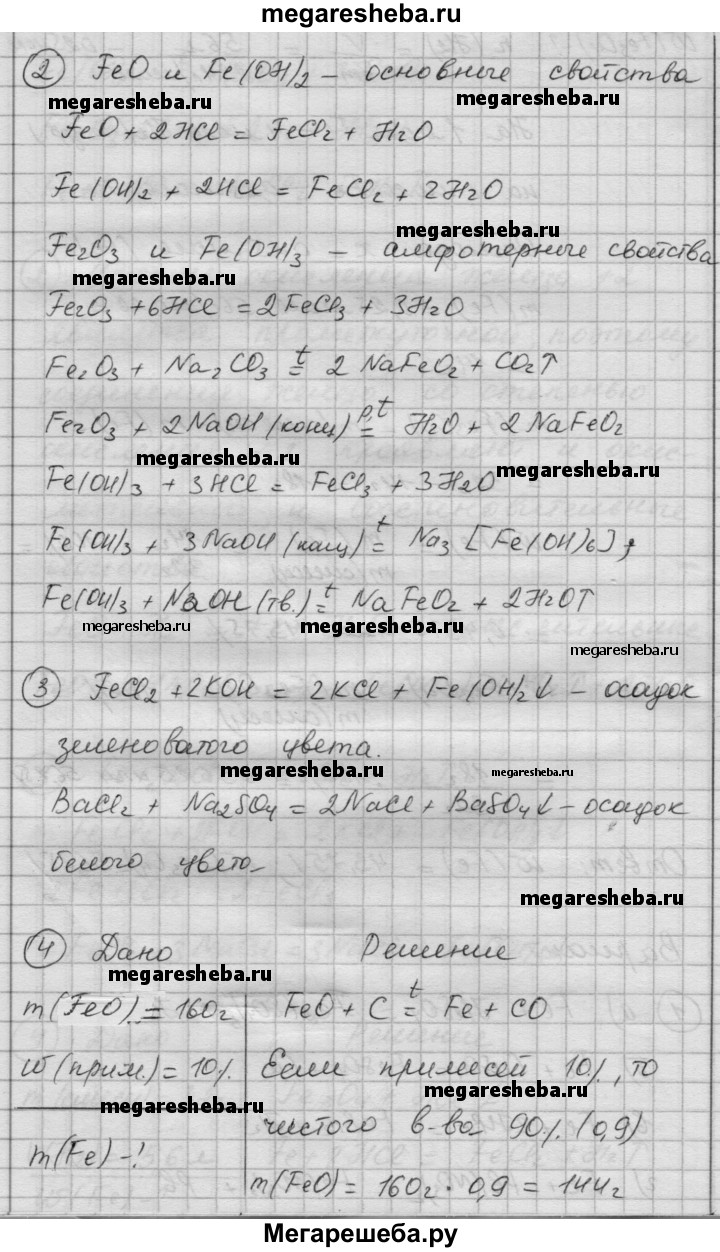 megaresheba.ru
② FeO и Fe(OH)₂ – основные свойства
megaresheba.ru megaresheba.ru
FeO + 2HCl = FeCl₂ + H₂O
Fe(OH)₂ + 2HCl = FeCl₂ + 2H₂O
megaresheba.ru
Fe₂O₃ и Fe(OH)₃ – амфотерные свойства
megaresheba.ru
Fe₂O₃ + 6HCl = 2FeCl₃ + 3H₂O
Fe₂O₃ + Na₂CO₃ =ᵗ 2NaFeO₂ + CO₂↑
Fe₂O₃ + 2NaOH (конц) =ᵖ,ᵗ H₂O + 2NaFeO₂
megaresheba.ru megaresheba.ru
Fe(OH)₃ + 3HCl = FeCl₃ + 3H₂O
Fe(OH)₃ + 3NaOH (конц) =ᵗ Na₃[Fe(OH)₆];
Fe(OH)₃ + NaOH (тв.) =ᵗ NaFeO₂ + 2H₂O↑
megaresheba.ru megaresheba.ru
megaresheba.ru
③ FeCl₂ + 2KOH = 2KCl + Fe(OH)₂↓ – осадок
зеленоватого цвета.
megaresheba.ru megaresheba.ru
BaCl₂ + Na₂SO₄ = 2NaCl + BaSO₄↓ – осадок
белого цвета
megaresheba.ru
④ Дано Решение
megaresheba.ru
m(FeO) = 160г FeO + C =ᵗ Fe + CO
w(прим.) = 10%. Если примесей 10%, то
megaresheba.ru megaresheba.ru
чистого в-ва 90% (0,9)
m(Fe) – ?
m(FeO) = 160г · 0,9 = 144г
Мегарешеба.ру